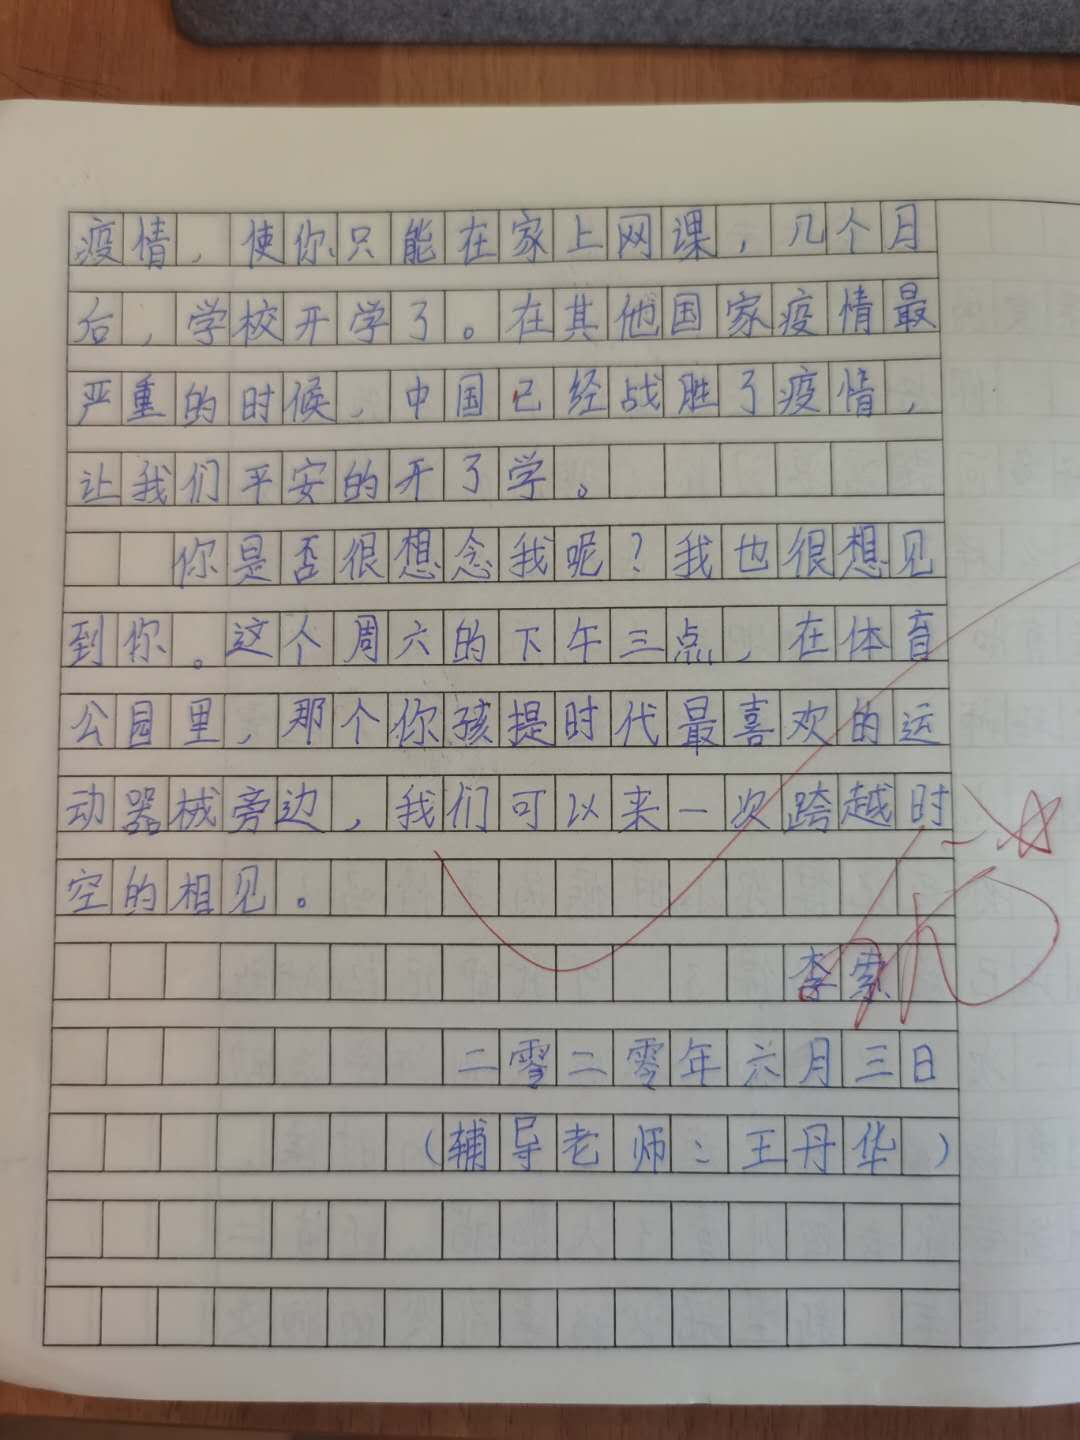 疫情，使你只能在家上网课，几个月
后，学校开学了。在其他国家疫情最
严重的时候，中国已经战胜了疫情，
让我们平安的开了学。
你是否很想念我呢？我也很想见
到你。这个周六的下午三点，在体育
公园里，那个你孩提时代最喜欢的运
动器械旁边，我们可以来一次跨越时
空的相见。
李索
二零二零年六月三日
（辅导老师：王丹华）